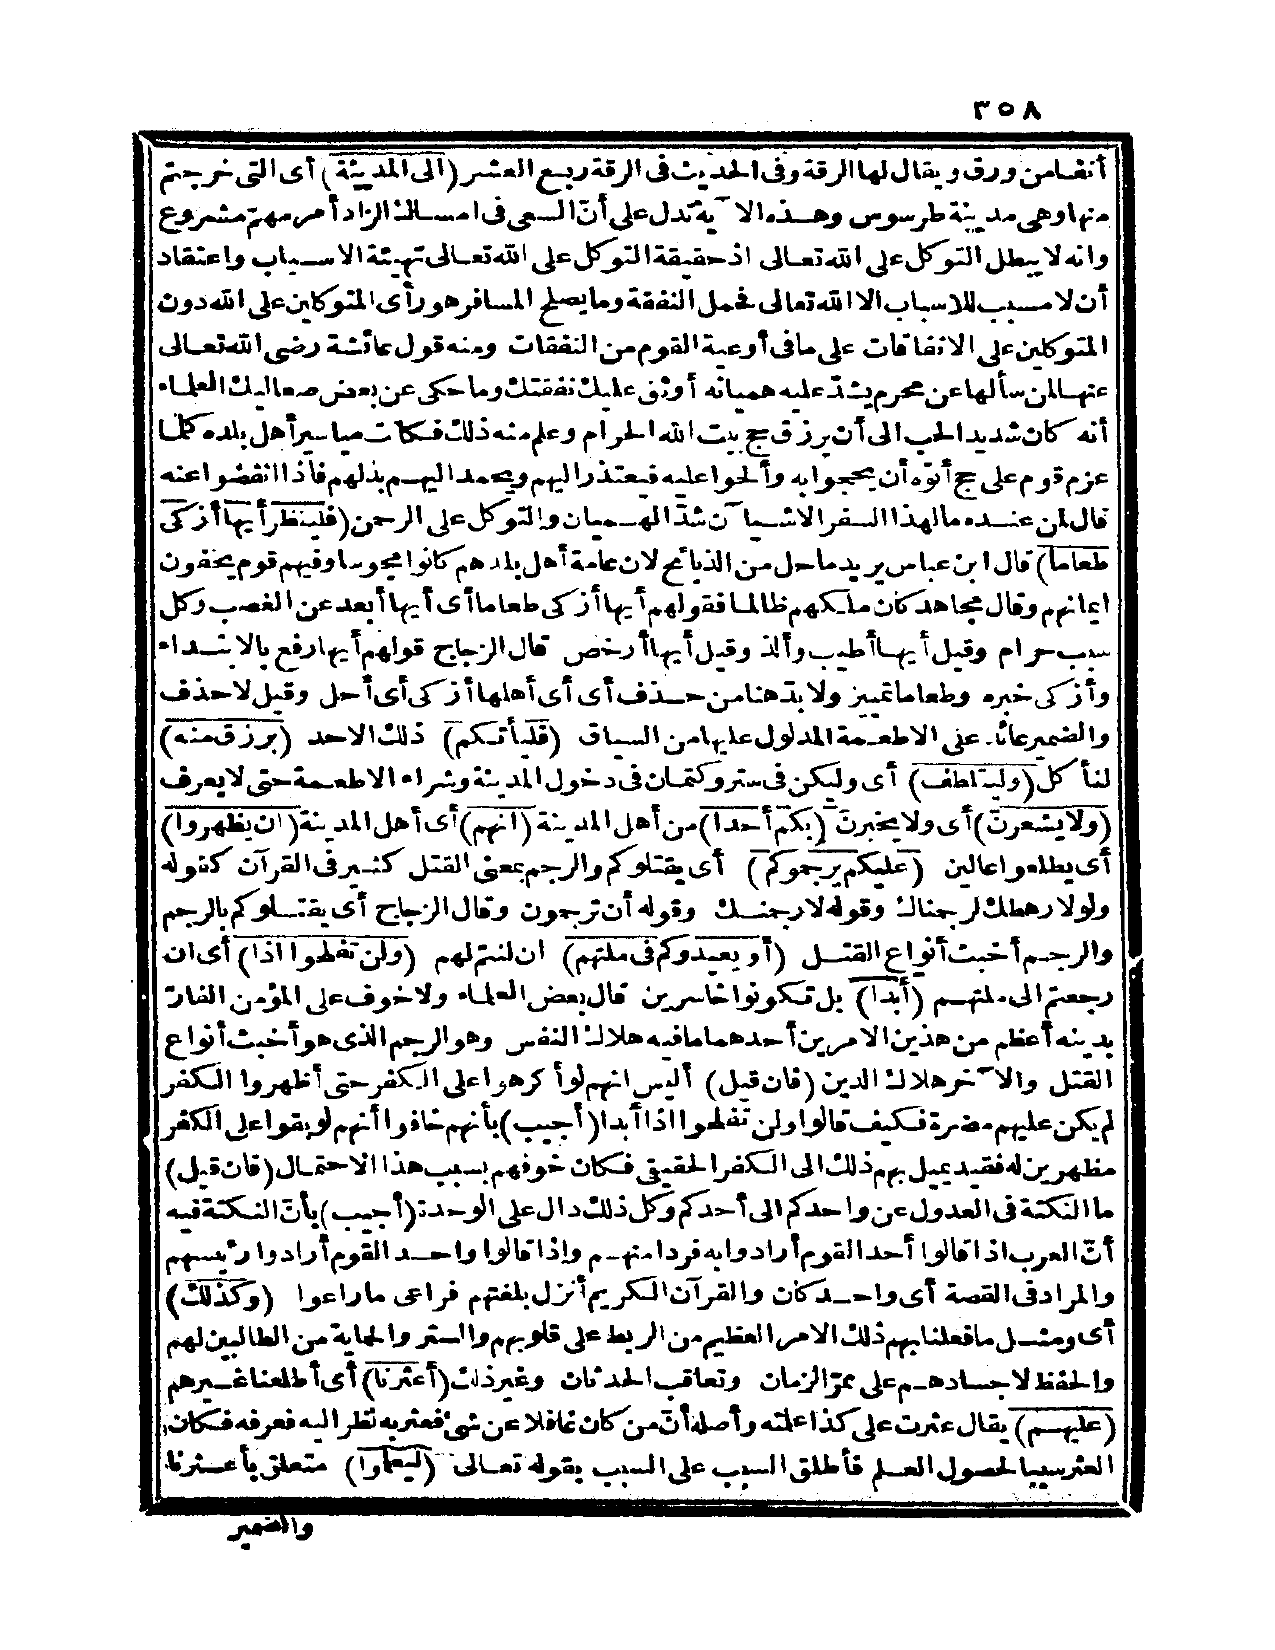 ٣٥٨
أنفا من ورق ويقال لها الرقة وفى الحديث فى الرقة ربع العشر (الى المدينة) أى التى خرجتم
منها وهى مدينة طرسوس وهذه الآية تدل على أنّ السعى فى امساك الزاد أمر مهمّ مشروع
وانه لا يبطل التوكل على الله تعالى اذ حقيقة التوكل على الله تعالى تهيئة الاسباب واعتقاد
أن لا مسبب للاسباب الا الله تعالى فحمل النفقة وما يصلح المسافر هو رأى المتوكلين على الله دون
المتوكلين على الاتفاقات على ما فى أوعية القوم من النفقات ومنه قول عائشة رضى الله تعالى
عنها لمن سألها عن محرم يشدّ عليه هميانه أوثق عليك نفقتك وما حكى عن بعض صعاليك العلماء
أنه كان شديد الحب الى أن يرزق حج بيت الله الحرام وعلم منه ذلك فكانت مياسير أهل بلده كلما
عزم قوم على حج أتوه أن يحجوا به وألحوا عليه فيعتذر اليهم ويحمد اليهم بذلهم فاذا انفضوا عنه
قال لمن عنده ما لهذا السفر الا شيآن شدّ الهميان والتوكل على الرحمن (فلينظر أيها أزكى
طعاما) قال ابن عباس يريد ما حل من الذبائح لان عامة أهل بلدهم كانوا مجوسا وفيهم قوم يخفون
ايمانهم وقال مجاهد كان ملكهم ظالما فقولهم أيها أزكى طعاما أى أيها أبعد عن الغصب وكل
سبب حرام وقيل أيها أطيب وألذ وقيل أيها أرخص قال الزجاج قولهم أيها رفع بالابتداء
وأزكى خبره وطعاما تمييز ولا بدّ هنا من حذف أى أى أهلها أزكى أى أحل وقيل لا حذف
والضمير عائد على الاطعمة المدلول عليها من السياق (فليأتكم) ذلك الاحد (برزق منه)
لنأكل (وليتلطف) أى وليكن فى ستر وكتمان فى دخول المدينة وشراء الاطعمة حتى لا يعرف
(ولا يشعرنّ) أى ولا يخبرنّ (بكم أحدا) من أهل المدينة (انهم) أى أهل المدينة (ان يظهروا)
أى يطلعوا عالين (عليكم يرجموكم) أى يقتلوكم والرجم بمعنى القتل كثير فى القرآن كقوله
ولولا رهطك لرجمناك وقوله لارجمنك وقوله أن ترجمون وقال الزجاج أى يقتلوكم بالرجم
والرجم أخبث أنواع القتل (أو يعيدوكم فى ملتهم) ان لنتم لهم (ولن تفلحوا اذا) أى ان
رجعتم الى ملتهم (أبدا) بل تكونوا خاسرين قال بعض العلماء ولا خوف على المؤمن الفارّ
بدينه أعظم من هذين الامرين أحدهما ما فيه هلاك النفس وهو الرجم الذى هو أخبث أنواع
القتل والآخر هلاك الدين (فان قيل) أليس انهم لو أكرهوا على الكفر حتى أظهروا الكفر
لم يكن عليهم مضرة فكيف قالوا ولن تفلحوا اذا أبدا (أجيب) بأنهم خافوا أنهم لو بقوا على الكفر
مظهرين له فقد يميل بهم ذلك الى الكفر الحقيقى فكان خوفهم بسبب هذا الاحتمال (فان قيل)
ما النكتة فى العدول عن واحدكم الى أحدكم وكل ذلك دال على الوحدة (أجيب) بأنّ النكتة فيه
أنّ العرب اذا قالوا أحد القوم أرادوا به فردا منهم واذا قالوا واحد القوم أرادوا رئيسهم
والمراد فى القصة أى واحد كان والقرآن الكريم أنزل بلغتهم فراعى ما راعوا (وكذلك)
أى ومثل ما فعلنا بهم ذلك الامر العظيم من الربط على قلوبهم والستر والحماية من الطالبين لهم
والحفظ لاجسادهم على ممرّ الزمان وتعاقب الحدثان وغير ذلك (أعثرنا) أى أطلعنا غيرهم
(عليهم) يقال عثرت على كذا علمته وأصله أنّ من كان غافلا عن شئ فعثر به نظر اليه فعرفه فكان
العثر سببا لحصول العلم فأطلق السبب على المسبب بقوله تعالى (ليعلموا) متعلق بأعثرنا
والضمير